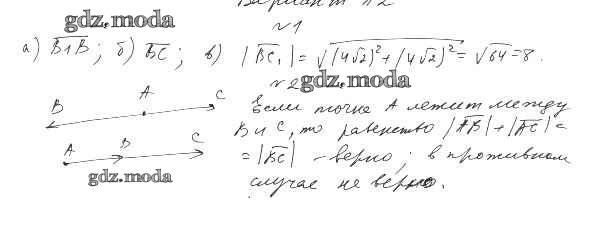 Вариант №2
gdz.moda
№1
а) B₁B; б) BC; в) |BC₁| = √((4√2)² + (4√2)²) = √64 = 8.
№2
gdz.moda
B A C
A B C
Если точка A лежит между
B и C, то равенство |AB| + |AC| =
= |BC| – верно; в противном
случае не верно.
gdz.moda